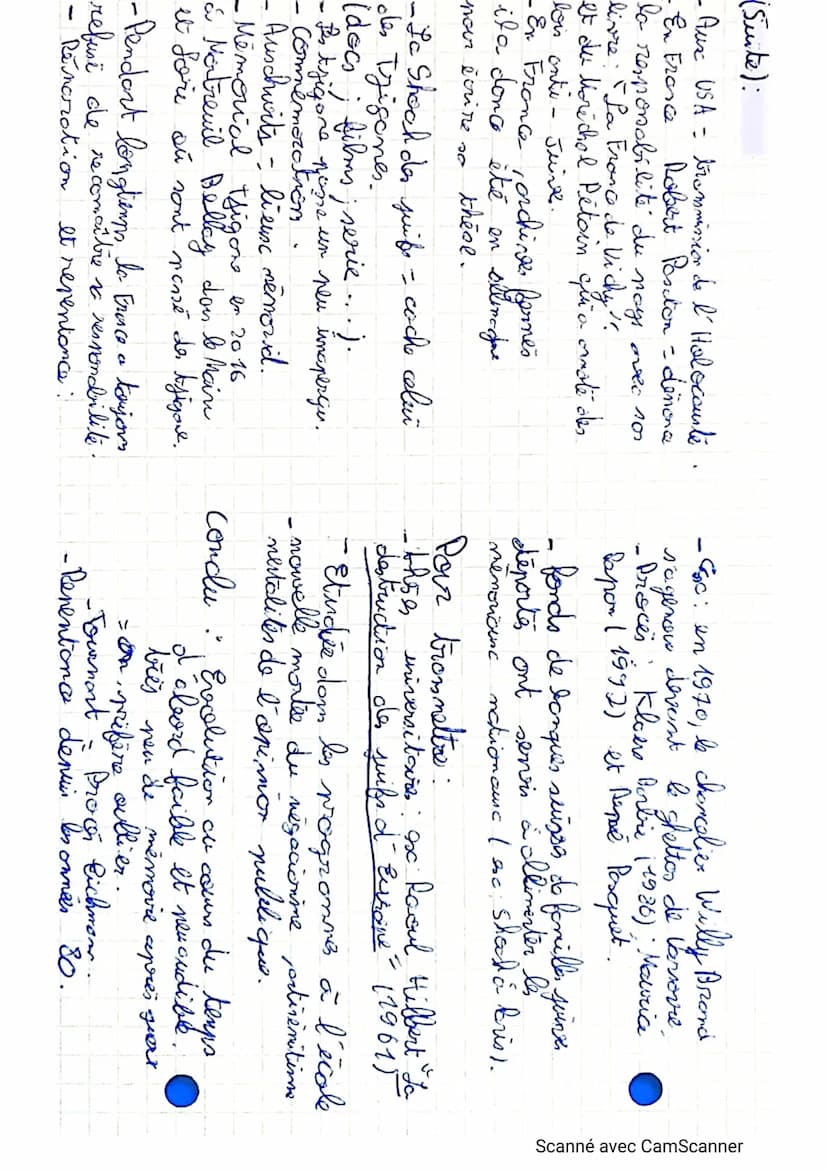 (Suite) :
- Aux USA = transmission de l'Holocauste.
- En France Robert Paxton = dénonce
la responsabilité du pays avec son
livre : "La France de Vichy"
et du Maréchal Pétain qui a monté des
lois anti-juive.
- En France, archives fermés
il a donc été en allemagne
pour écrire sa thèse.
- La Shoah des juifs = cache celui
des Tziganes.
(docs ; films ; serie...).
- Les tzigane passe un peu inaperçu.
- Commémoration.
- Auschwitz = lieux mémorial.
- Mémorial Tzigane en 2016
à Montreuil Bellay dans le Main
et Loire où sont passé des tzigane.
- Pendant longtemps la France a toujours
refusé de reconnaître sa responsabilité.
- Réparation et repentance :
- Ex : en 1970, le chancelier Willy Brand
s'agenoux devant le ghetto de Varsovie
- Procès : Klaus Barbie (1986) ; Maurice
Papon (1992) et René Pasquet.
- fonds de banques suisses de familles juives
déportés ont servis à allimenter les
mémoriaux nationaux (ex : Shoah à Paris).
Pour transmettre :
- thèses universitaires : ex Raoul Hilbert "la
destruction des juifs d'Europe" (1961)
- Etudiée dans les programmes à l'école
- nouvelle montée du négacionisme, antisémitisme
mentalités de l'opinion publique.
Conclu : Évolution au cours du temps
d'abord faible et peu audible.
très peu de mémoire après guerre
= on préfère oublier.
- Tournant = Procès Eichman.
- Repentance depuis les années 80.
Scanné avec CamScanner